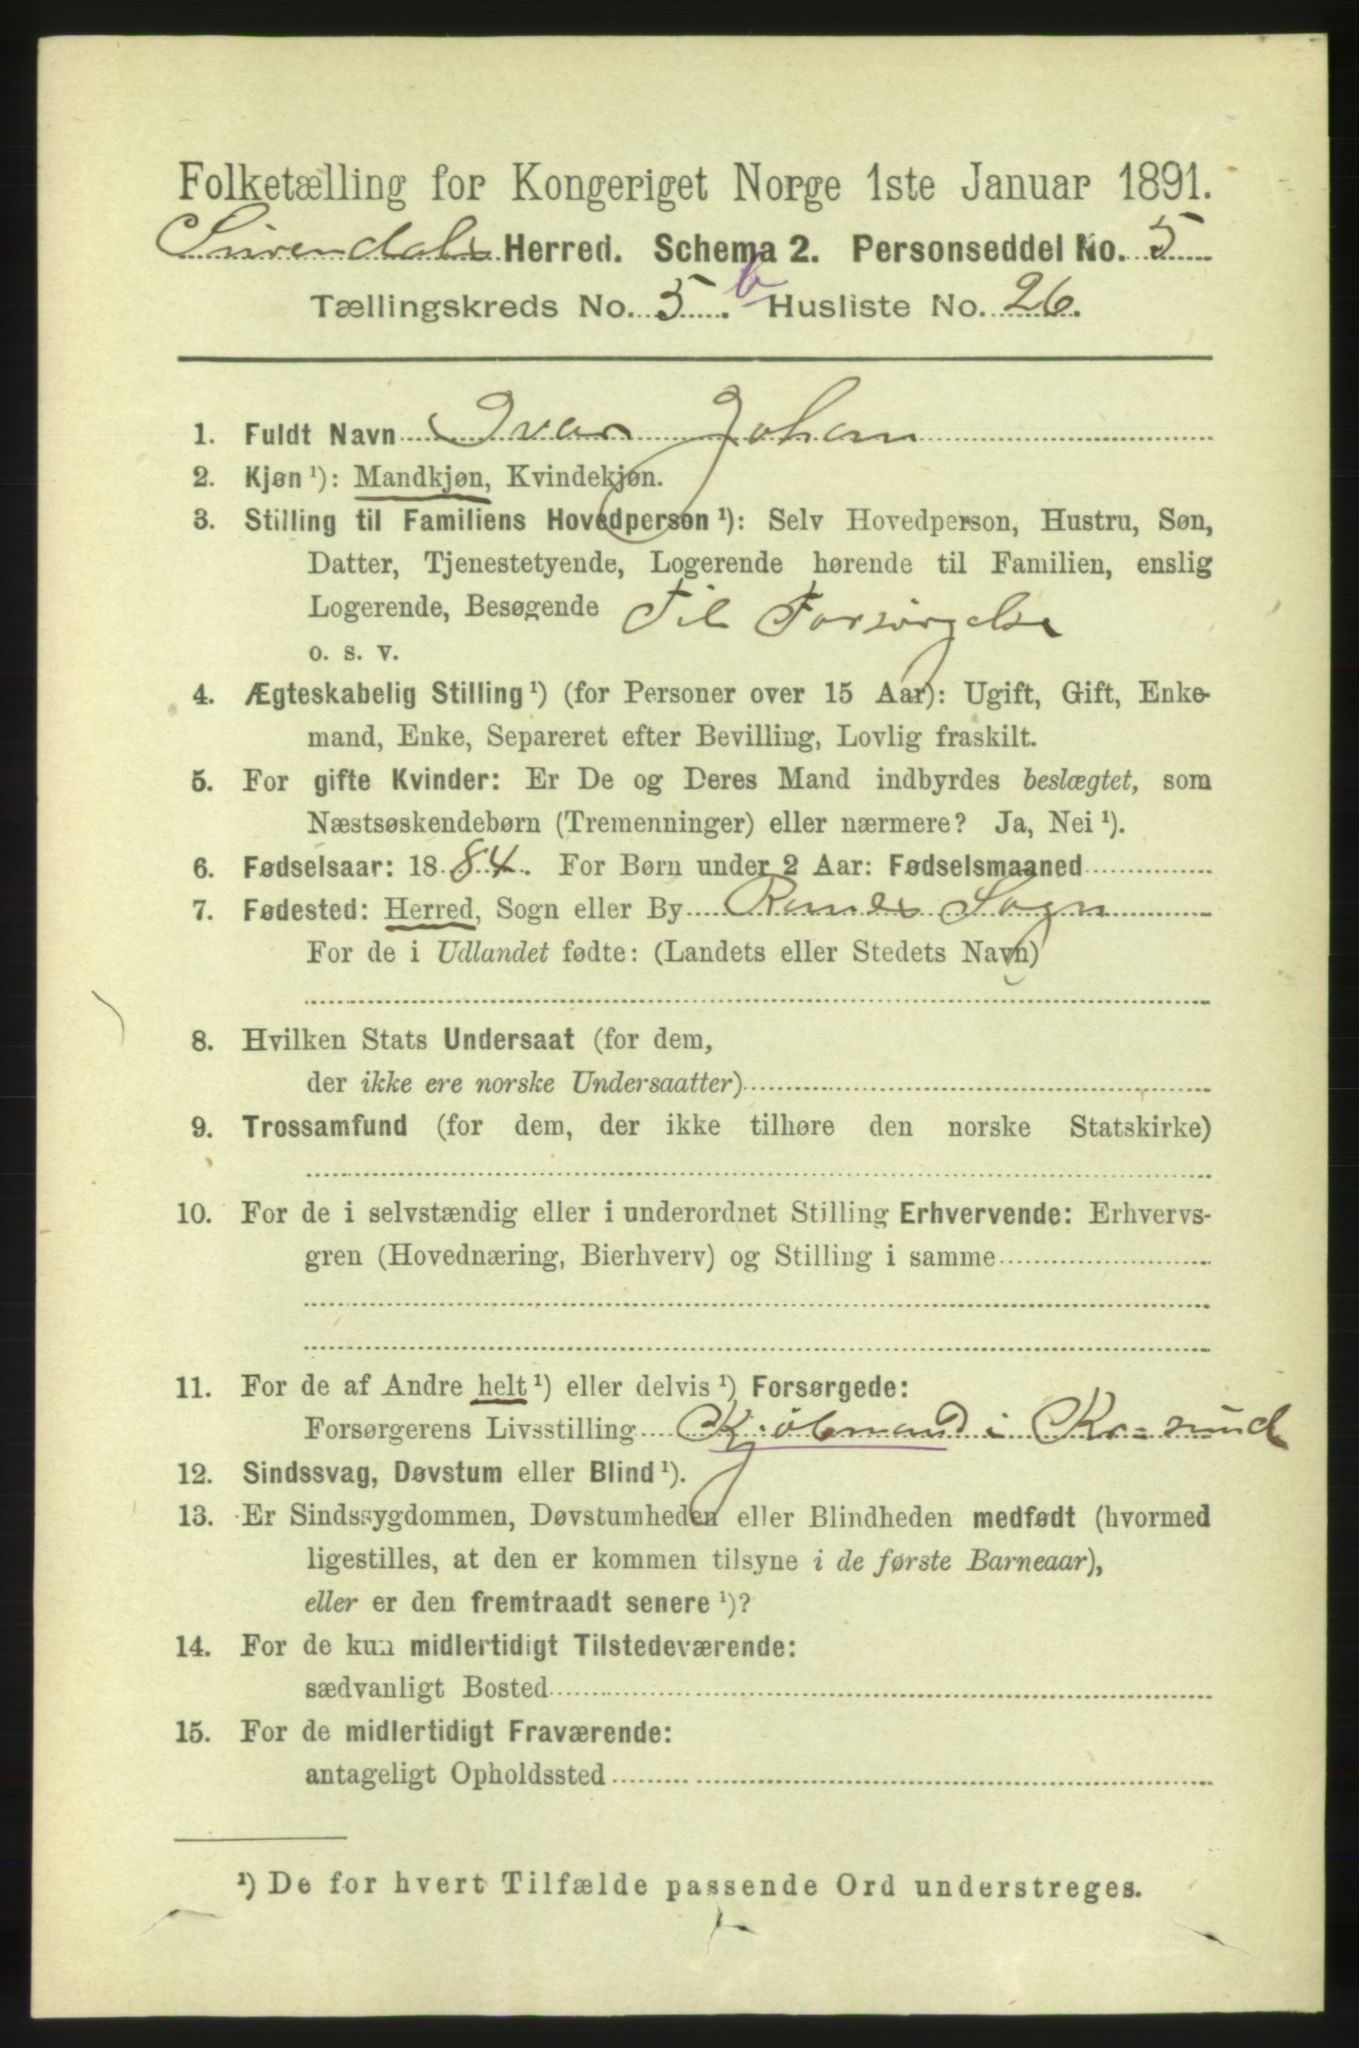 Folketælling for Kongeriget Norge 1ste Januar 1891.
Surendals Herred. Schema 2. Personseddel No. 5
Tællingskreds No. 5 b Husliste No. 26.
1. Fuldt Navn Ivar Johan
2. Kjøn ¹): Mandkjøn, Kvindekjøn.
3. Stilling til Familiens Hovedperson ¹): Selv Hovedperson, Hustru, Søn,
Datter, Tjenestetyende, Logerende hørende til Familien, enslig
Logerende, Besøgende Til Forsørgelse
o. s. v.
4. Ægteskabelig Stilling ¹) (for Personer over 15 Aar): Ugift, Gift, Enke-
mand, Enke, Separeret efter Bevilling, Lovlig fraskilt.
5. For gifte Kvinder: Er De og Deres Mand indbyrdes beslægtet, som
Næstsøskendebørn (Tremenninger) eller nærmere? Ja, Nei ¹).
6. Fødselsaar: 1884. For Børn under 2 Aar: Fødselsmaaned
7. Fødested: Herred, Sogn eller By Ranes Sogn
For de i Udlandet fødte: (Landets eller Stedets Navn)
8. Hvilken Stats Undersaat (for dem,
der ikke ere norske Undersaatter)
9. Trossamfund (for dem, der ikke tilhøre den norske Statskirke)
10. For de i selvstændig eller i underordnet Stilling Erhvervende: Erhvervs-
gren (Hovednæring, Bierhverv) og Stilling i samme
11. For de af Andre helt ¹) eller delvis ¹) Forsørgede:
Forsørgerens Livsstilling Kjøbmand i Kr-sund
12. Sindssvag, Døvstum eller Blind ¹).
13. Er Sindssygdommen, Døvstumheden eller Blindheden medfødt (hvormed
ligestilles, at den er kommen tilsyne i de første Barneaar),
eller er den fremtraadt senere ¹)?
14. For de kun midlertidigt Tilstedeværende:
sædvanligt Bosted
15. For de midlertidigt Fraværende:
antageligt Opholdssted
¹) De for hvert Tilfælde passende Ord understreges.